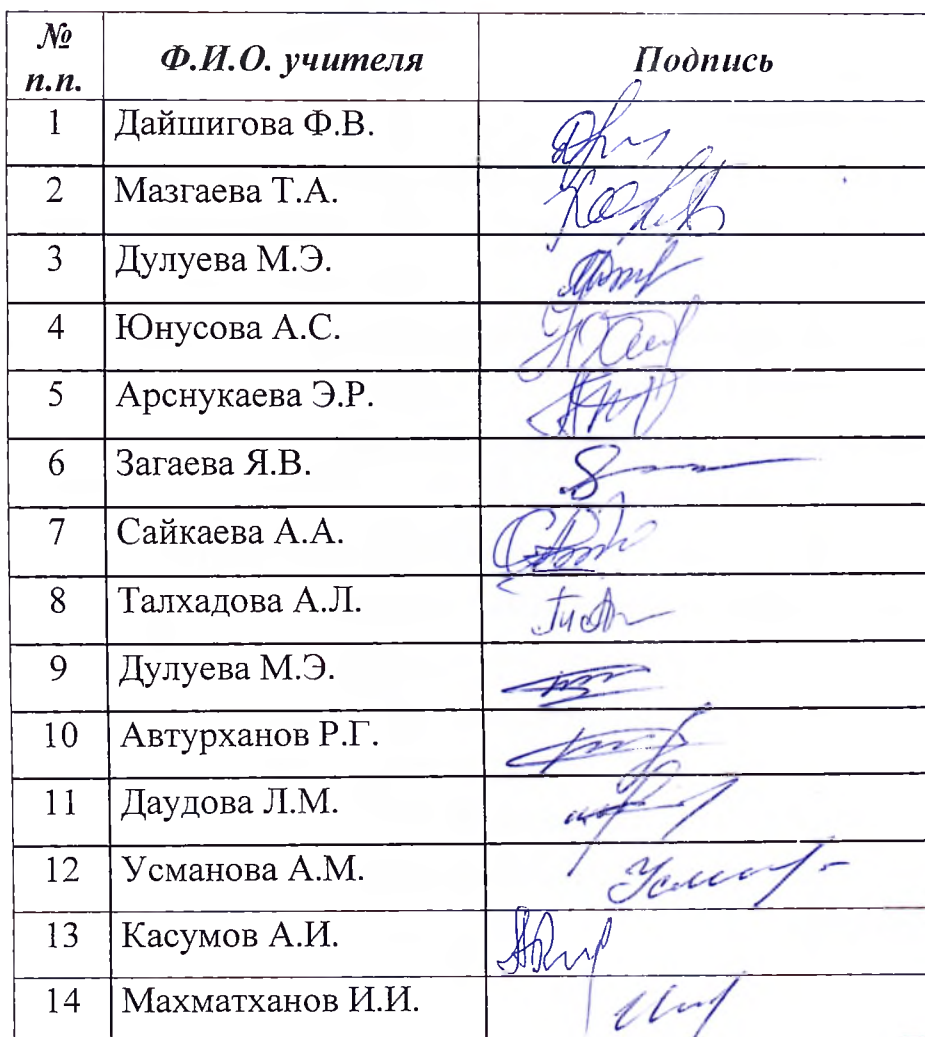 № п.п. Ф.И.О. учителя Подпись
1 Дайшигова Ф.В.
2 Мазгаева Т.А.
3 Дулуева М.Э.
4 Юнусова А.С.
5 Арснукаева Э.Р.
6 Загаева Я.В.
7 Сайкаева А.А.
8 Талхадова А.Л.
9 Дулуева М.Э.
10 Автурханов Р.Г.
11 Даудова Л.М.
12 Усманова А.М.
13 Касумов А.И.
14 Махматханов И.И.